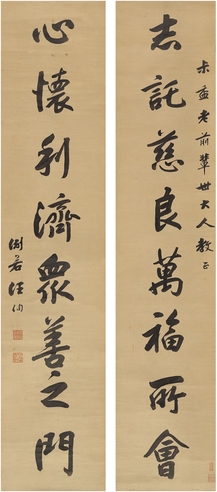 未孟老前輩世大人教正
志託慈良萬福所會
心懷利濟衆善之門
閬若汪